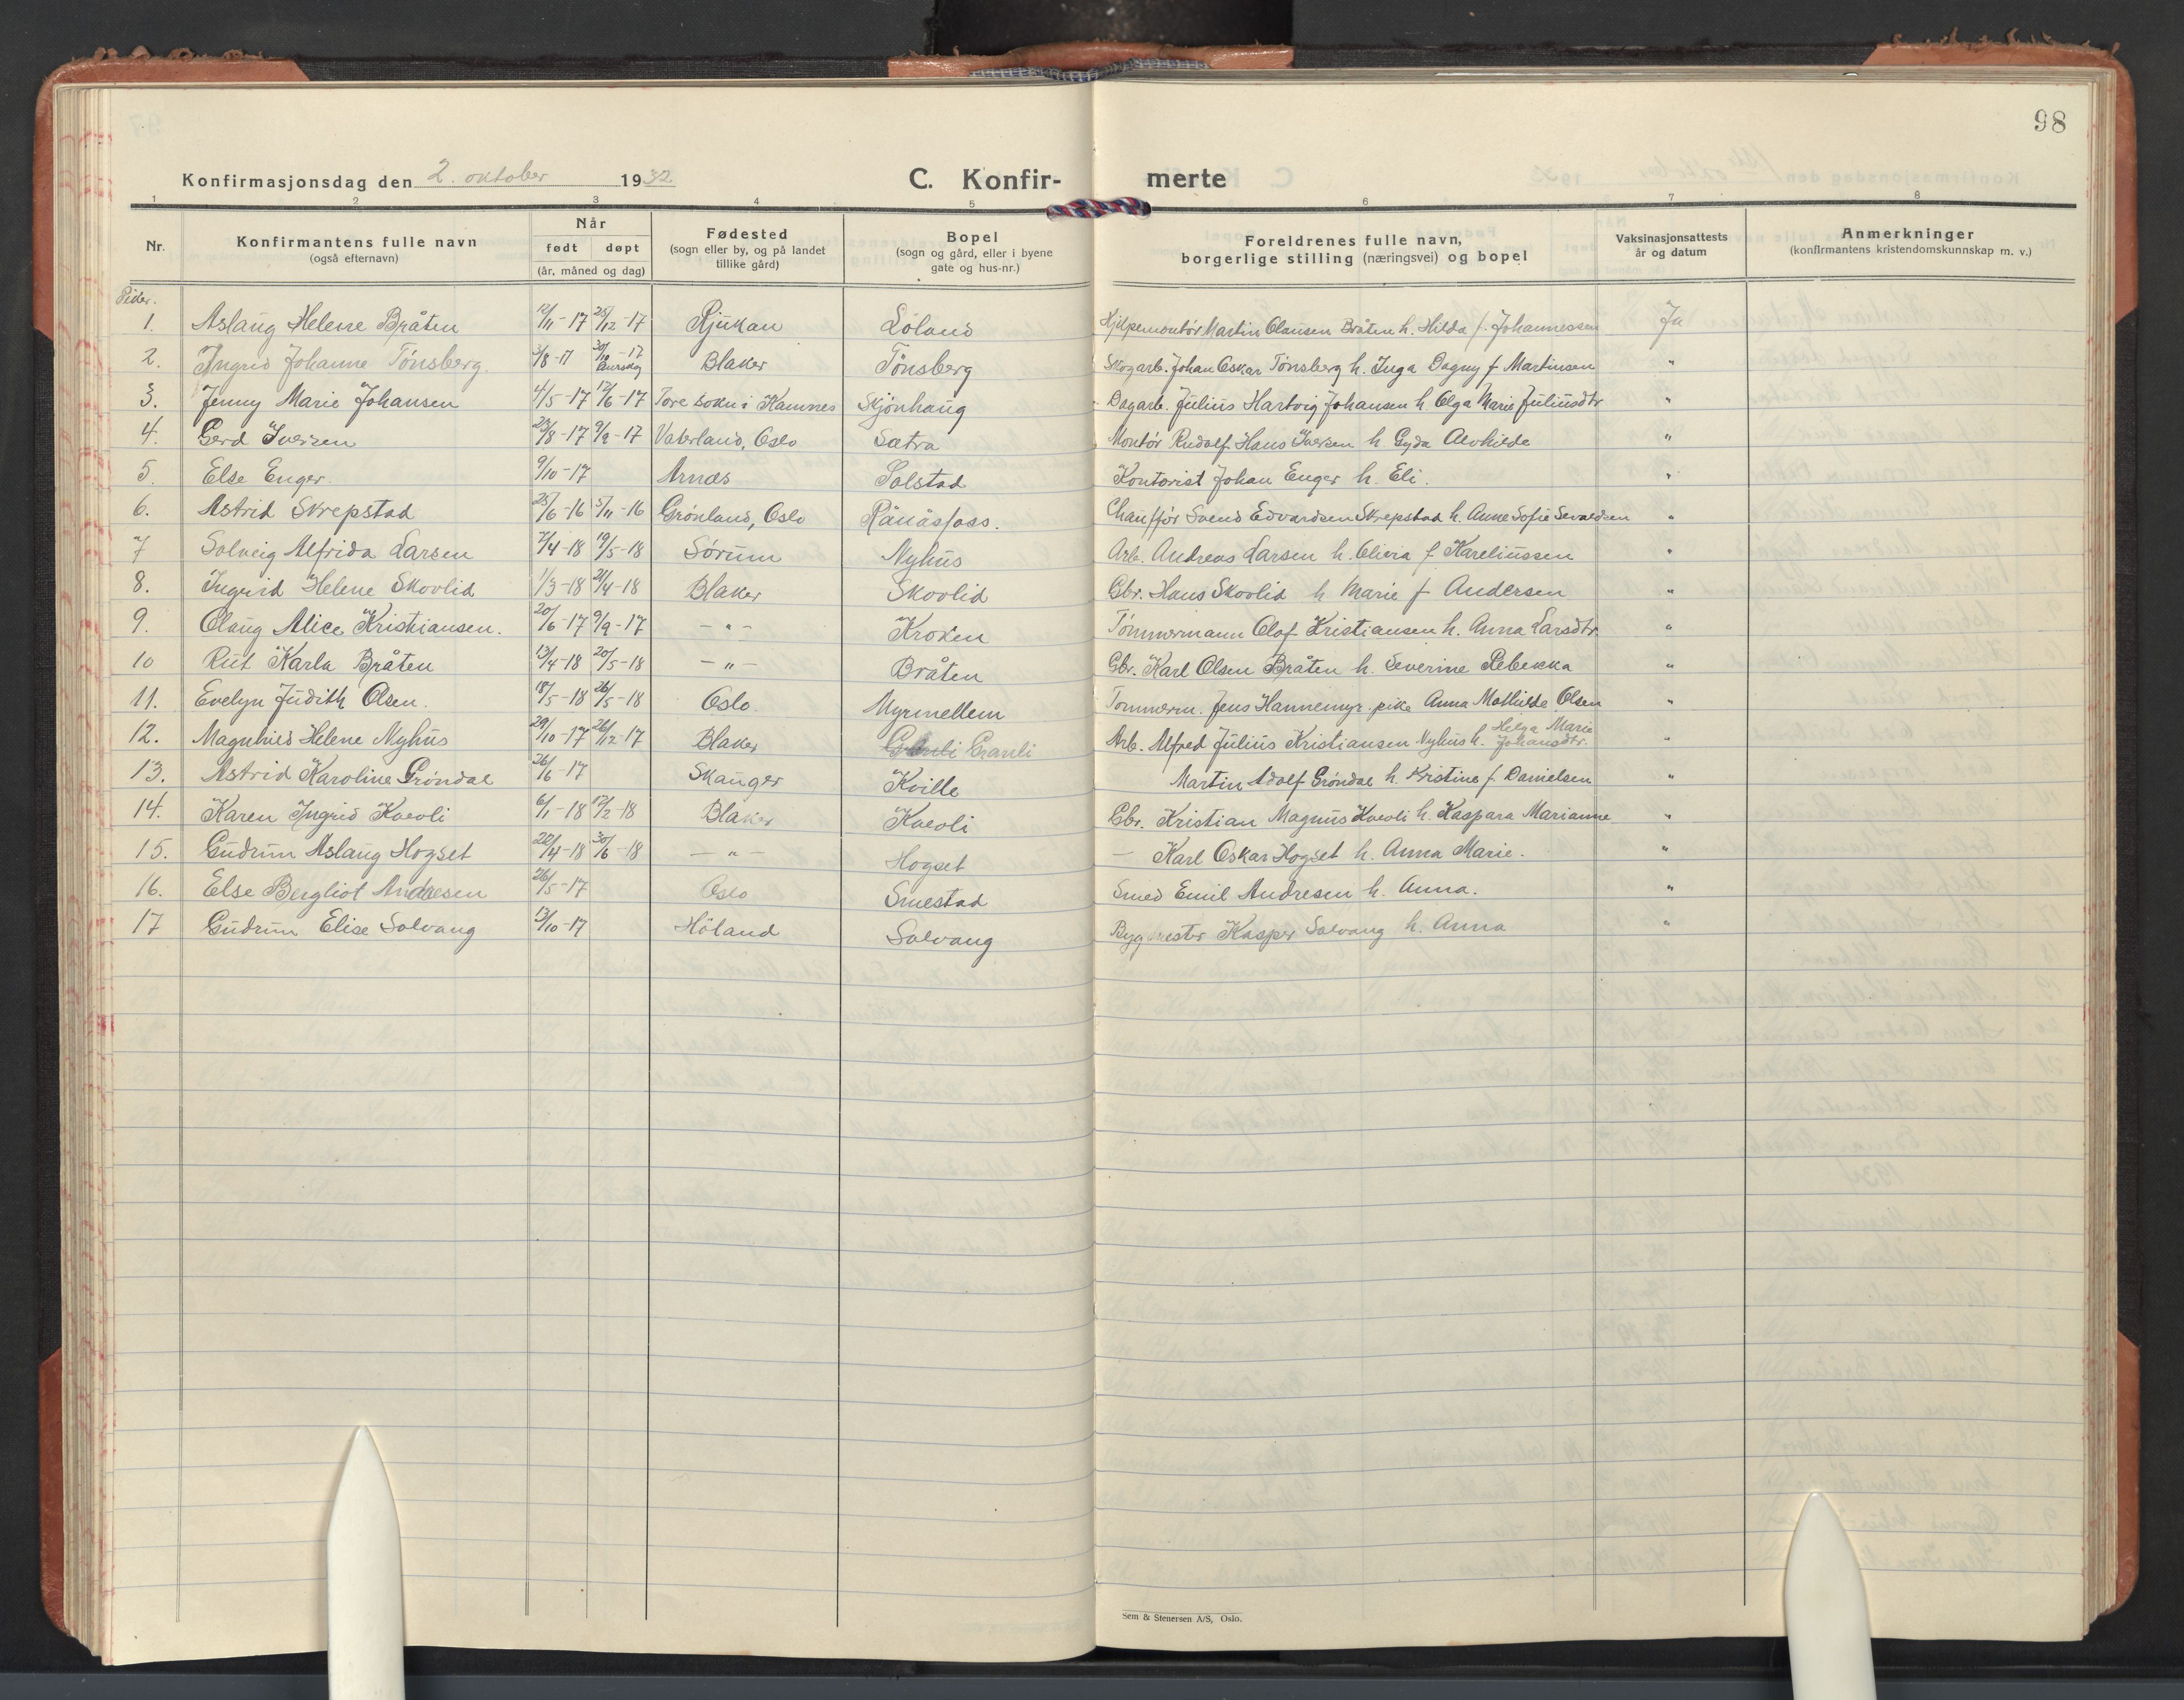 98
Konfirmasjonsdag den 2. oktober 1932 C. Konfir- merte
1 2 3 4 5 6 7 8
Nr. Konfirmantens fulle navn (også efternavn) Når født døpt (år, måned og dag) Fødested (sogn eller by, og på landet tillike gård) Bopel (sogn og gård, eller i byene gate og hus-nr.) Foreldrenes fulle navn, borgerlige stilling (næringsvei) og bopel Vaksinasjonsattests år og datum Anmerkninger (konfirmantens kristendomskunnskap m. v.)
Piker.
1. Aslaug Helene Bråten 12/11-17 25/12-17 Rjukan Löland Hjelpemontör Martin Olausen Bråten h. Hilda f. Johannessen Ja
2. Ingrid Johanne Tönsberg. 3/8-17 30/10-17 Aurskog Blaker Tönsberg Skogarb. Johan Oskar Tönsberg h. Inga Dagny f. Martinsen "
3. Jenny Marie Johansen 4/5-17 17/6-17 Tore sokn i Hamnes Skjönhaug Dagarb. Julius Hartvig Johansen h. Olga Marie Juliusdtr "
4. Gerd Iversen 23/8-17 9/9-17 Vaterland, Oslo Sætra Montör Rudolf Hans Iversen h. Gyda Alvhilde "
5. Else Enger. 9/10-17 Arnæs Solstad Kontorist Johan Enger h. Eli. "
6. Astrid Skrepstad 25/6-16 5/11-16 Grönland, Oslo Rånåsfoss. Chaufför Svend Edvardsen Skrepstad h. Anne Sofie Sevaldsen "
7 Solveig Alfrida Larsen 7/4-18 19/5-18 Sörum Nyhus Arb. Andreas Larsen h. Olivia f. Kareliussen "
8. Ingrid Helene Skovlid 1/3-18 21/4-18 Blaker Skovlid Gbr. Hans Skovlid h Marie f Andersen "
9. Olaug Alice Kristiansen. 20/6-17 9/9-17 - " - Kroken Tömmermann Olaf Kristiansen h. Anna Larsdtr. "
10 Rut Karla Bråten 13/4-18 20/5-18 - " - Bråten Gbr. Karl Olsen Bråten h. Severine Rebekka "
11. Evelyn Judith Olsen. 18/5-18 26/5-18 Oslo. Myrmellem Tömmerm. Jens Hannemyr. pike Anna Mathilde Olsen "
12. Magnhild Helene Nyhus 29/10-17 26/12-17 Blaker Granli Arb. Alfred Julius Kristiansen Nyhus h. Helga Marie Johansdtr. "
13. Astrid Karoline Gröndal 26/6-17 Skauger Kville Martin Adolf Gröndal h. Kristine f. Danielsen "
14. Karen Ingrid Kvevli 6/1-18 17/2-18 Blaker Kvevli Gbr. Kristian Magnus Kvevli h. Kaspara Marianne "
15. Gudrun Aslaug Hogset 20/4-18 30/6-18 - " - Hogset - Karl Oskar Hogset h. Anna Marie. "
16. Else Bergliot Andresen 26/5-17 Oslo Smestad Smed Emil Andresen h. Anna. "
17 Gudrun Elise Solvang 13/10-17 Höland Solvang Bygmester Kasper Solvang h. Anna "
Sem & Stenersen A/S, Oslo.